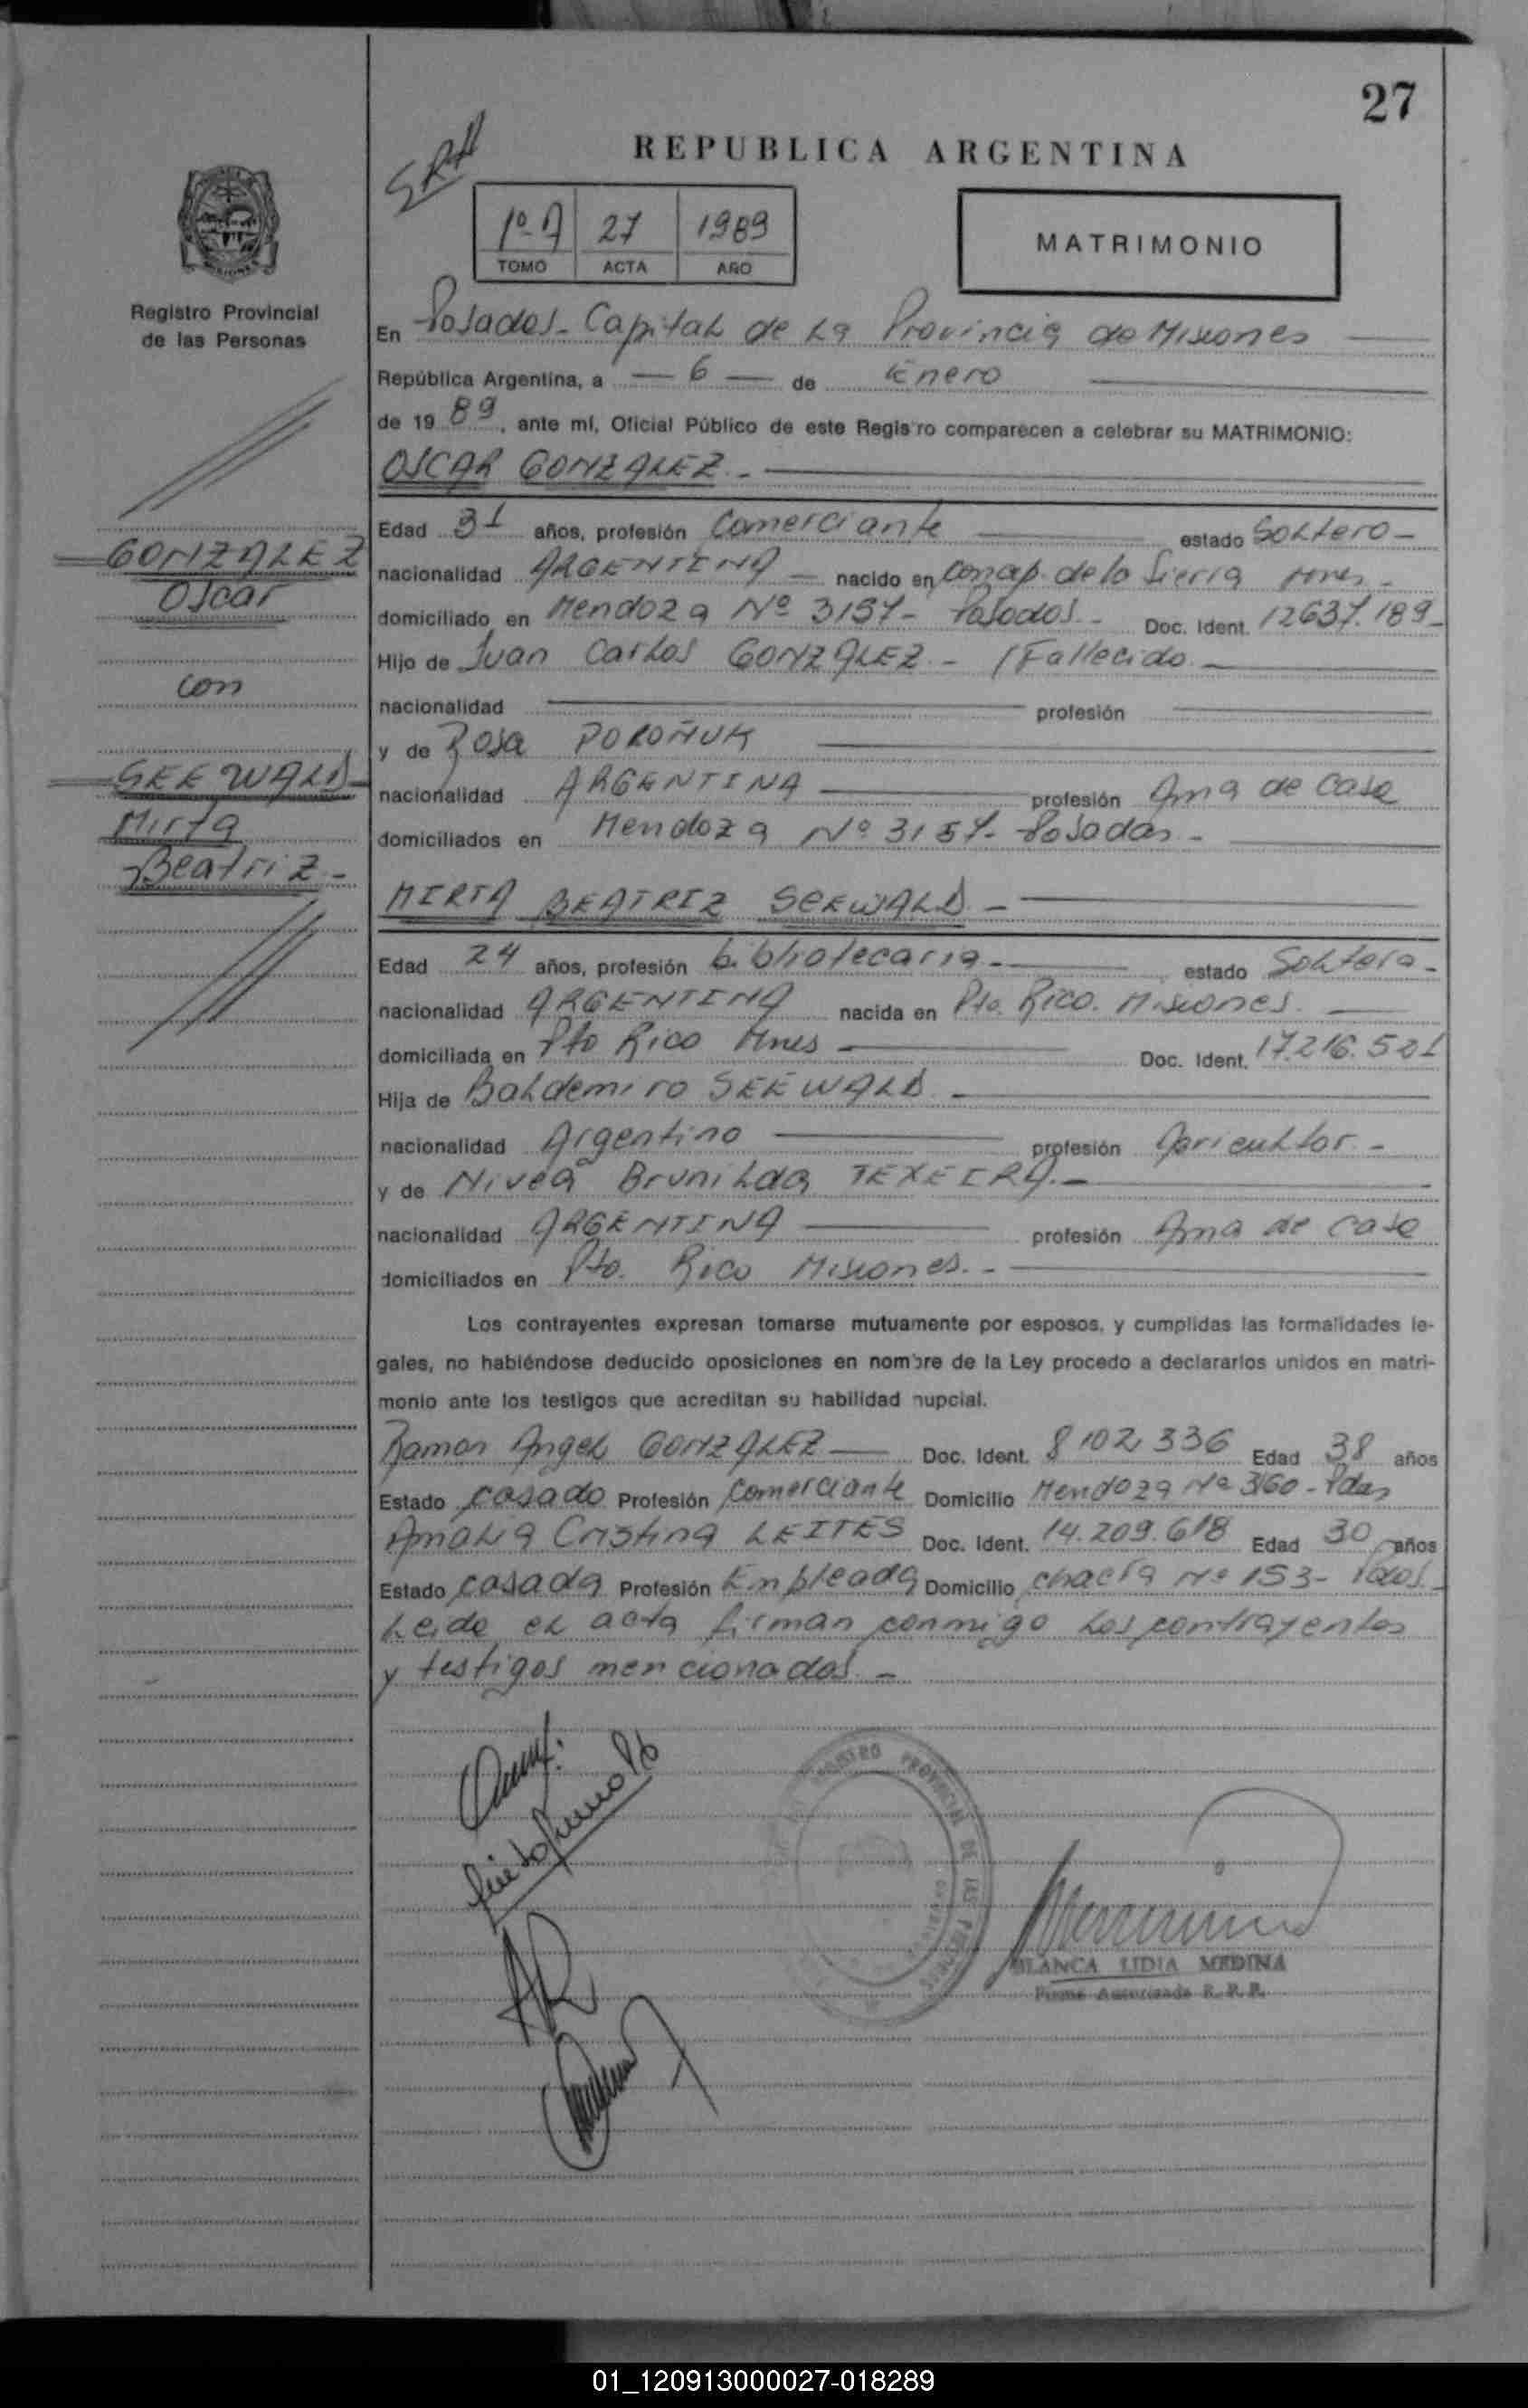 27
REPUBLICA ARGENTINA
1º A 27 1989
TOMO ACTA AÑO
MATRIMONIO
Registro Provincial
de las Personas
En Posadas - Capital de La Provincia de Misiones
República Argentina, a 6 de Enero
de 19 89, ante mí, Oficial Público de este Registro comparecen a celebrar su MATRIMONIO:
OSCAR GONZALEZ.-
Edad 31 años, profesión Comerciante estado Soltero-
GONZALEZ
Oscar
con
SEEWALD-
Mirta
Beatriz-
nacionalidad ARGENTINA nacido en Concep. de la Sierra Mnes-
domiciliado en Mendoza Nº 3157- Posadas.- Doc. Ident. 12637.189-
Hijo de Juan Carlos GONZALEZ - /Fallecido.-
nacionalidad profesión
y de Rosa
nacionalidad ARGENTINA profesión Ama de casa
domiciliados en Mendoza Nº 3157- Posadas-
MIRTA BEATRIZ SEEWALD-
Edad 24 años, profesión bibliotecaria- estado Soltera-
nacionalidad ARGENTINA nacida en Pto. Rico. Misiones.
domiciliada en Pto Rico Mnes Doc. Ident. 17.216.501
Hija de Baldemiro SEEWALD.
nacionalidad Argentino profesión Agricultor-
y de Nivea Brunilda TEXEIRA.-
nacionalidad ARGENTINA profesión Ama de casa
domiciliados en Pto. Rico Misiones.-
Los contrayentes expresan tomarse mutuamente por esposos, y cumplidas las formalidades le-
gales, no habiéndose deducido oposiciones en nombre de la Ley procedo a declararlos unidos en matri-
monio ante los testigos que acreditan su habilidad nupcial.
Ramon Angel GONZALEZ Doc. Ident. 8 102 336 Edad 38 años
Estado casado Profesión Comerciante Domicilio Mendoza Nº 3160-Pdas
Amalia Cristina LEITES Doc. Ident. 14.209.618 Edad 30 años
Estado casada Profesión Empleada Domicilio chacra Nº 153- Pdas.
Leido el acta firman conmigo los contrayentes
y testigos mencionados.-
REGISTRO PROVINCIAL DE LAS PERSONAS
BLANCA LIDIA MEDINA
Firma Autorizada R. P. P.
01_120913000027-018289